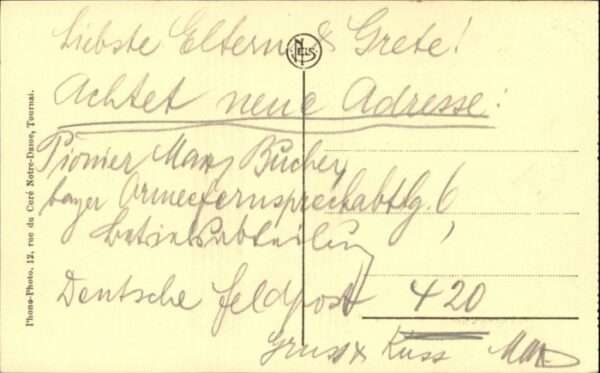 Liebste Eltern & Grete!
Achtet neue Adresse:
Pionier Max Bucher
bayer Armeefernsprechabtlg. 6
Betriebsabteilung
Deutsche Feldpost 420
Gruss & Kuss Max
Phono-Photo, 12, rue du Curé Notre-Dame, Tournai.
NELS